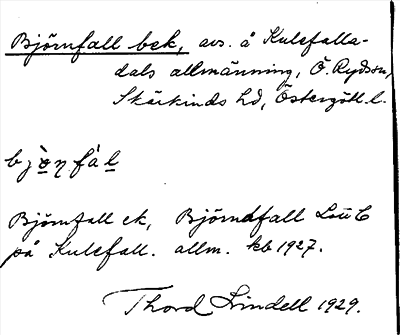 Björnfall bek, avs. å Kulefalla-
dals allmänning, Ö. Ryds sn,
Skärkinds hd, Östergötl. l.
bjònfál
Björnfall ek, Björndfall LSu C
på Kulefall. allm. kb 1927.
Thord Lindell 1929.